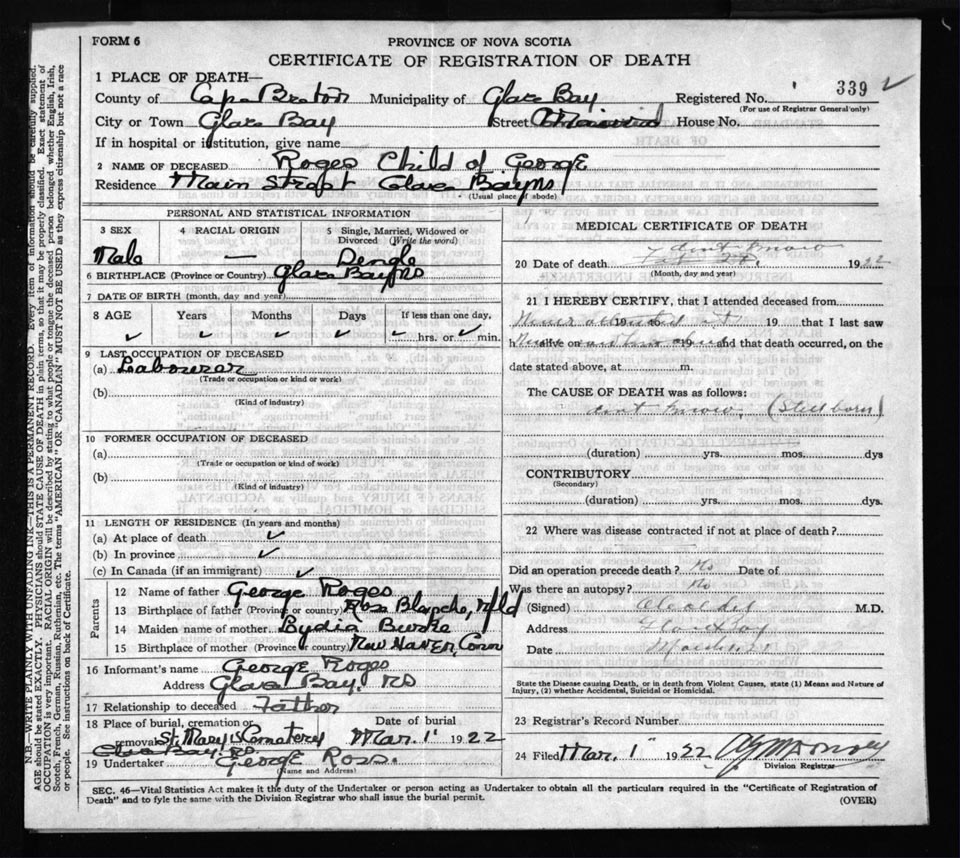 FORM 6
PROVINCE OF NOVA SCOTIA
CERTIFICATE OF REGISTRATION OF DEATH
1 PLACE OF DEATH—
County of Cape Breton Municipality of Glace Bay Registered No. 339
(For use of Registrar General only)
City or Town Glace Bay Street House No.
If in hospital or institution, give name
2 NAME OF DECEASED Roges Child of George
Residence Main Street Glace Bay NS
(Usual place of abode)
PERSONAL AND STATISTICAL INFORMATION
3 SEX 4 RACIAL ORIGIN 5 Single, Married, Widowed or Divorced (Write the word)
Male —
6 BIRTHPLACE (Province or Country) Glace Bay NS
7 DATE OF BIRTH (month, day and year)
8 AGE Years Months Days If less than one day,
✓ ✓ ✓ ✓ hrs. or ✓ min.
9 LAST OCCUPATION OF DECEASED
(a) Labourer
(Trade or occupation or kind or work)
(b)
(Kind of industry)
10 FORMER OCCUPATION OF DECEASED
(a)
(Trade or occupation or kind of work)
(b)
(Kind of industry)
11 LENGTH OF RESIDENCE (In years and months)
(a) At place of death ✓
(b) In province ✓
(c) In Canada (if an immigrant) ✓
Parents
12 Name of father George Roges
13 Birthplace of father (Province or country) Rose Blanche, Nfld
14 Maiden name of mother Lydia Burke
15 Birthplace of mother (Province or country) New Haven, Conn
16 Informant's name George Roges
Address Glace Bay, NS
17 Relationship to deceased Father
18 Place of burial, cremation or removal St. Mary's Cemetery Date of burial Mar. 1 1922
Glace Bay NS
19 Undertaker George Ross.
(Name and Address)
MEDICAL CERTIFICATE OF DEATH
20 Date of death 1922
(Month, day and year)
21 I HEREBY CERTIFY, that I attended deceased from
19 to 19 that I last saw
h alive on 19 and that death occurred, on the
date stated above, at m.
The CAUSE OF DEATH was as follows:
dont know (Still born)
(duration) yrs. mos. dys
CONTRIBUTORY
(Secondary)
(duration) yrs. mos. dys.
22 Where was disease contracted if not at place of death?
Did an operation precede death? No Date of
Was there an autopsy? No
(Signed) M.D.
Address Glace Bay
Date
State the Disease causing Death, or in death from Violent Causes, state (1) Means and Nature of
Injury, (2) whether Accidental, Suicidal or Homicidal.
23 Registrar's Record Number
24 Filed Mar. 1 1922
Division Registrar
SEC. 46—Vital Statistics Act makes it the duty of the Undertaker or person acting as Undertaker to obtain all the particulars required in the "Certificate of Registration of
Death" and to fyle the same with the Division Registrar who shall issue the burial permit.
(OVER)
N.B.—WRITE PLAINLY WITH UNFADING INK—THIS IS A PERMANENT RECORD. Every item of information should be carefully supplied.
AGE should be stated EXACTLY. PHYSICIANS should STATE CAUSE OF DEATH in plain terms, so that it may be properly classified. Exact statement of
OCCUPATION is very important. RACIAL ORIGIN will be described by stating to what people or tongue the deceased person belonged whether English, Irish,
Scotch, French, German, Russian, Ruthenian, etc. The terms "AMERICAN" OR "CANADIAN" MUST NOT BE USED as they express citizenship but not a race
or people. See instructions on back of Certificate.